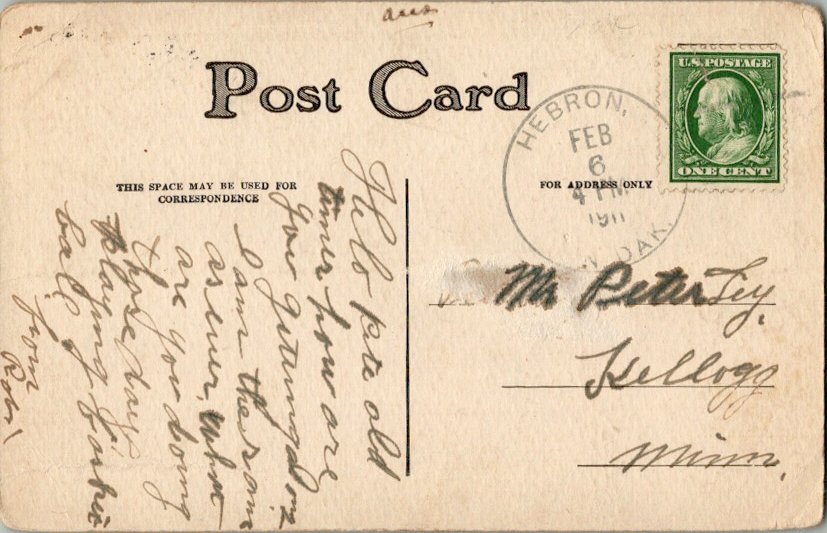 ans
Post Card
U.S. POSTAGE
ONE CENT
HEBRON,
FEB
6
4 PM
1911
N. DAK.
THIS SPACE MAY BE USED FOR
CORRESPONDENCE
FOR ADDRESS ONLY
Hello Pete old
timer how are
you getting along
I am the same
as ever, What
are you doing
those days
playing Basket
ball
from
Mr Peter
Kellogg
Minn.